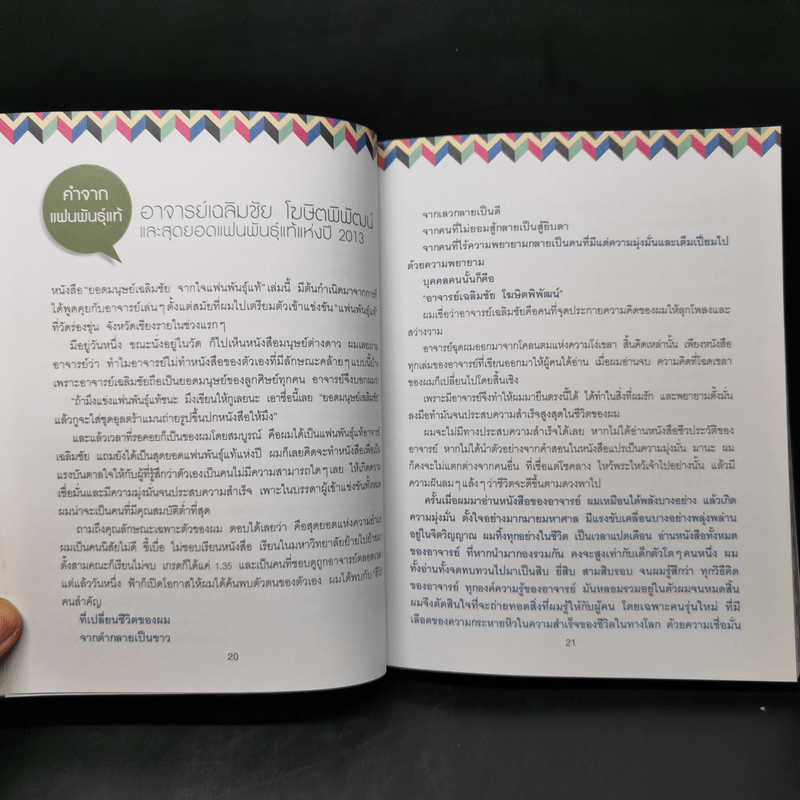 คำจาก
แฟนพันธุ์แท้
อาจารย์เฉลิมชัย โฆษิตพิพัฒน์
และสุดยอดแฟนพันธุ์แท้แห่งปี 2013
หนังสือ "ยอดมนุษย์เฉลิมชัย จากใจแฟนพันธุ์แท้" เล่มนี้ มีต้นกำเนิดมาจากการที่
ได้พูดคุยกับอาจารย์เล่นๆ ตั้งแต่สมัยที่ผมไปเตรียมตัวเข้าแข่งขัน "แฟนพันธุ์แท้"
ที่วัดร่องขุ่น จังหวัดเชียงรายในช่วงแรกๆ
มีอยู่วันหนึ่ง ขณะนั่งอยู่ในวัด ก็ไปเห็นหนังสือมนุษย์ต่างดาว ผมเลยถาม
อาจารย์ว่า ทำไมอาจารย์ไม่ทำหนังสือของตัวเองที่มีลักษณะคล้ายๆ แบบนี้บ้าง
เพราะอาจารย์เฉลิมชัยถือเป็นยอดมนุษย์ของลูกศิษย์ทุกคน อาจารย์จึงบอกผมว่า
"ถ้ามึงแข่งแฟนพันธุ์แท้ชนะ มึงเขียนให้กูเลยนะ เอาชื่อนี้เลย "ยอดมนุษย์เฉลิมชัย"
แล้วกูจะใส่ชุดอุลตร้าแมนถ่ายรูปขึ้นปกหนังสือให้มึง"
และแล้วเวลาที่รอคอยก็เป็นของผมโดยสมบูรณ์ คือผมได้เป็นแฟนพันธุ์แท้อาจารย์
เฉลิมชัย แถมยังได้เป็นสุดยอดแฟนพันธุ์แท้แห่งปี ผมก็เลยคิดจะทำหนังสือเพื่อเป็น
แรงบันดาลใจให้กับผู้ที่รู้สึกว่าตัวเองเป็นคนไม่มีความสามารถใดๆ เลย ให้เกิดความ
เชื่อมั่นและมีความมุ่งมั่นจนประสบความสำเร็จ เพราะในบรรดาผู้เข้าแข่งขันทั้งหมด
ผมน่าจะเป็นคนที่มีคุณสมบัติต่ำที่สุด
ถามถึงคุณลักษณะเฉพาะตัวของผม ตอบได้เลยว่า คือสุดยอดแห่งความย่ำแย่
ผมเป็นคนนิสัยไม่ดี ขี้เบื่อ ไม่ชอบเรียนหนังสือ เรียนในมหาวิทยาลัยย้ายไปย้ายมา
ตั้งสามคณะก็เรียนไม่จบ เกรดก็ได้แค่ 1.35 และเป็นคนที่ชอบดูถูกอาจารย์ตลอดเวลา
แต่แล้ววันหนึ่ง ฟ้าก็เปิดโอกาสให้ผมได้ค้นพบตัวตนของตัวเอง ผมได้พบกับ
คนสำคัญ
ที่เปลี่ยนชีวิตของผม
จากดำกลายเป็นขาว
20
จากเลวกลายเป็นดี
จากคนที่ไม่ยอมสู้กลายเป็นสู้ยิบตา
จากคนที่ไร้ความพยายามกลายเป็นคนที่มีแต่ความมุ่งมั่นและเต็มเปี่ยมไป
ด้วยความพยายาม
บุคคลคนนั้นก็คือ
"อาจารย์เฉลิมชัย โฆษิตพิพัฒน์"
ผมเชื่อว่าอาจารย์เฉลิมชัยคือคนที่จุดประกายความคิดของผมให้ลุกโพลงและ
สว่างวาม
อาจารย์ฉุดผมออกมาจากโคลนตมแห่งความโง่เขลา สิ้นคิดเหล่านั้น เพียงหนังสือ
ทุกเล่มของอาจารย์ที่เขียนออกมาให้ผู้คนได้อ่าน เมื่อผมอ่านจบ ความคิดที่โฉดเขลา
ของผมก็เปลี่ยนไปโดยสิ้นเชิง
เพราะมีอาจารย์จึงทำให้ผมมายืนตรงนี้ได้ ได้ทำในสิ่งที่ผมรัก และพยายามตั้งมั่น
ลงมือทำมันจนประสบความสำเร็จสูงสุดในชีวิตของผม
ผมจะไม่มีทางประสบความสำเร็จได้เลย หากไม่ได้อ่านหนังสือชีวประวัติของ
อาจารย์ หากไม่ได้นำตัวอย่างจากคำสอนในหนังสือแปรเป็นความมุ่งมั่น มานะ ผม
ก็คงจะไม่แตกต่างจากคนอื่น ที่เชื่อแต่โชคลาง ไหว้พระไหว้เจ้าไปอย่างนั้น แล้วมี
ความฝันลมๆ แล้งๆ ว่าชีวิตจะดีขึ้นตามดวงพาไป
ครั้นเมื่อผมมาอ่านหนังสือของอาจารย์ ผมเหมือนได้พลังบางอย่าง แล้วเกิด
ความมุ่งมั่น ตั้งใจอย่างมากมายมหาศาล มีแรงขับเคลื่อนบางอย่างพลุ่งพล่าน
อยู่ในจิตวิญญาณ ผมทิ้งทุกอย่างในชีวิต เป็นเวลาแปดเดือน อ่านหนังสือทั้งหมด
ของอาจารย์ ที่หากนำมากองรวมกัน คงจะสูงเท่ากับเด็กตัวโตๆ คนหนึ่ง ผม
ทั้งอ่านทั้งจดทบทวนไปมาเป็นสิบ ยี่สิบ สามสิบรอบ จนผมรู้สึกว่า ทุกวิธีคิด
ของอาจารย์ ทุกองค์ความรู้ของอาจารย์ มันหลอมรวมอยู่ในตัวผมจนหมดสิ้น
ผมจึงตัดสินใจที่จะถ่ายทอดสิ่งที่ผมรู้ให้กับผู้คน โดยเฉพาะคนรุ่นใหม่ ที่มี
เลือดของความกระหายหิวในความสำเร็จของชีวิตในทางโลก ด้วยความเชื่อมั่น
21